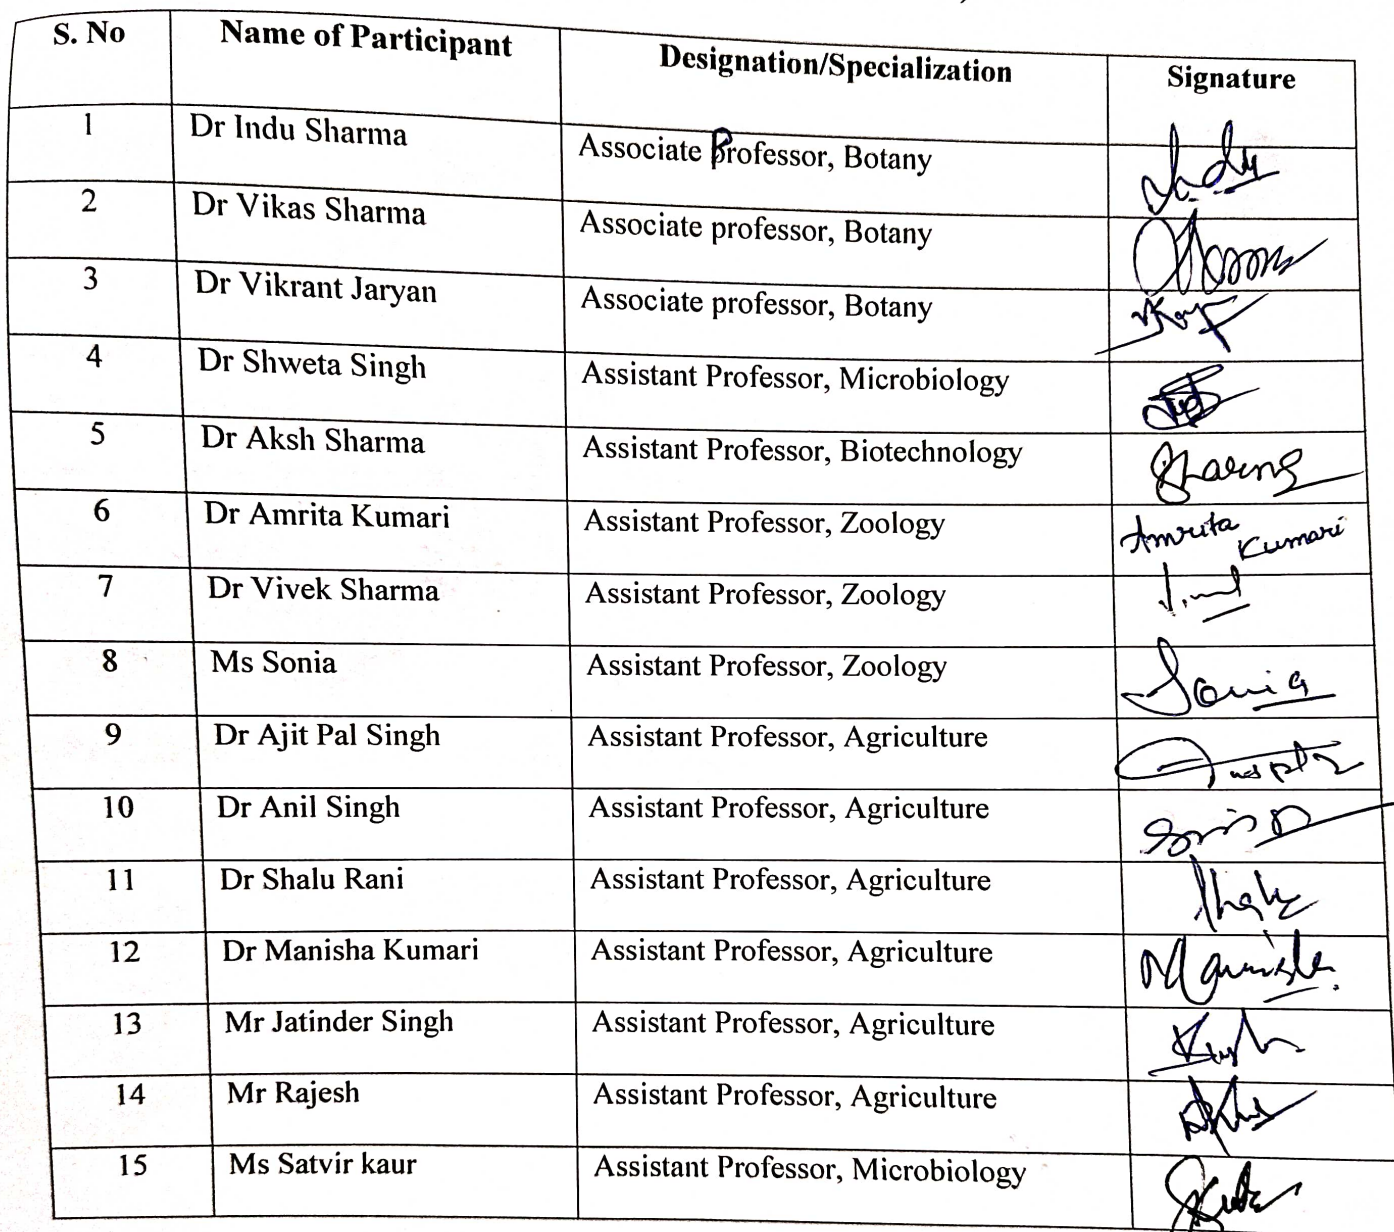 S. No Name of Participant Designation/Specialization Signature
1 Dr Indu Sharma Associate Professor, Botany Indu
2 Dr Vikas Sharma Associate professor, Botany
3 Dr Vikrant Jaryan Associate professor, Botany
4 Dr Shweta Singh Assistant Professor, Microbiology
5 Dr Aksh Sharma Assistant Professor, Biotechnology Sharma
6 Dr Amrita Kumari Assistant Professor, Zoology Amrita Kumari
7 Dr Vivek Sharma Assistant Professor, Zoology
8 Ms Sonia Assistant Professor, Zoology Sonia
9 Dr Ajit Pal Singh Assistant Professor, Agriculture
10 Dr Anil Singh Assistant Professor, Agriculture
11 Dr Shalu Rani Assistant Professor, Agriculture Shalu
12 Dr Manisha Kumari Assistant Professor, Agriculture Manisha
13 Mr Jatinder Singh Assistant Professor, Agriculture
14 Mr Rajesh Assistant Professor, Agriculture
15 Ms Satvir kaur Assistant Professor, Microbiology